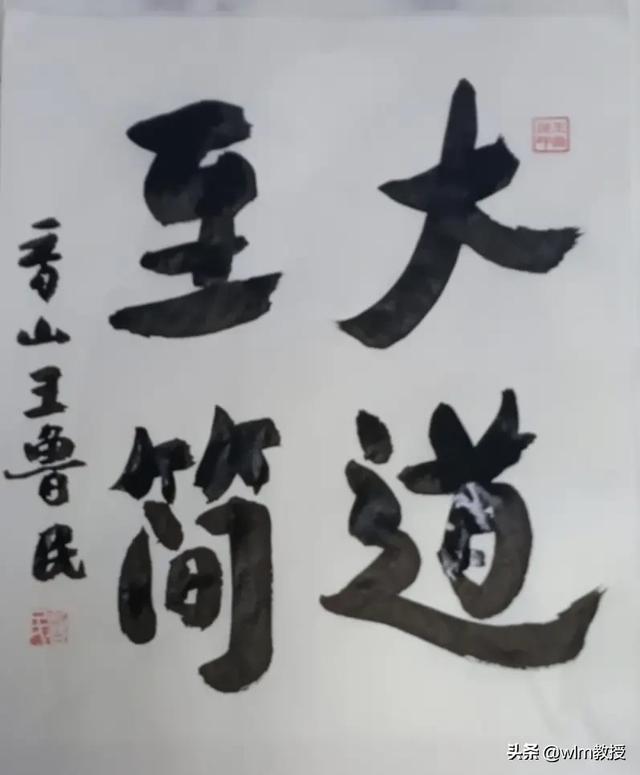 大道
至简
山王鲁民
头条 @wlm教授